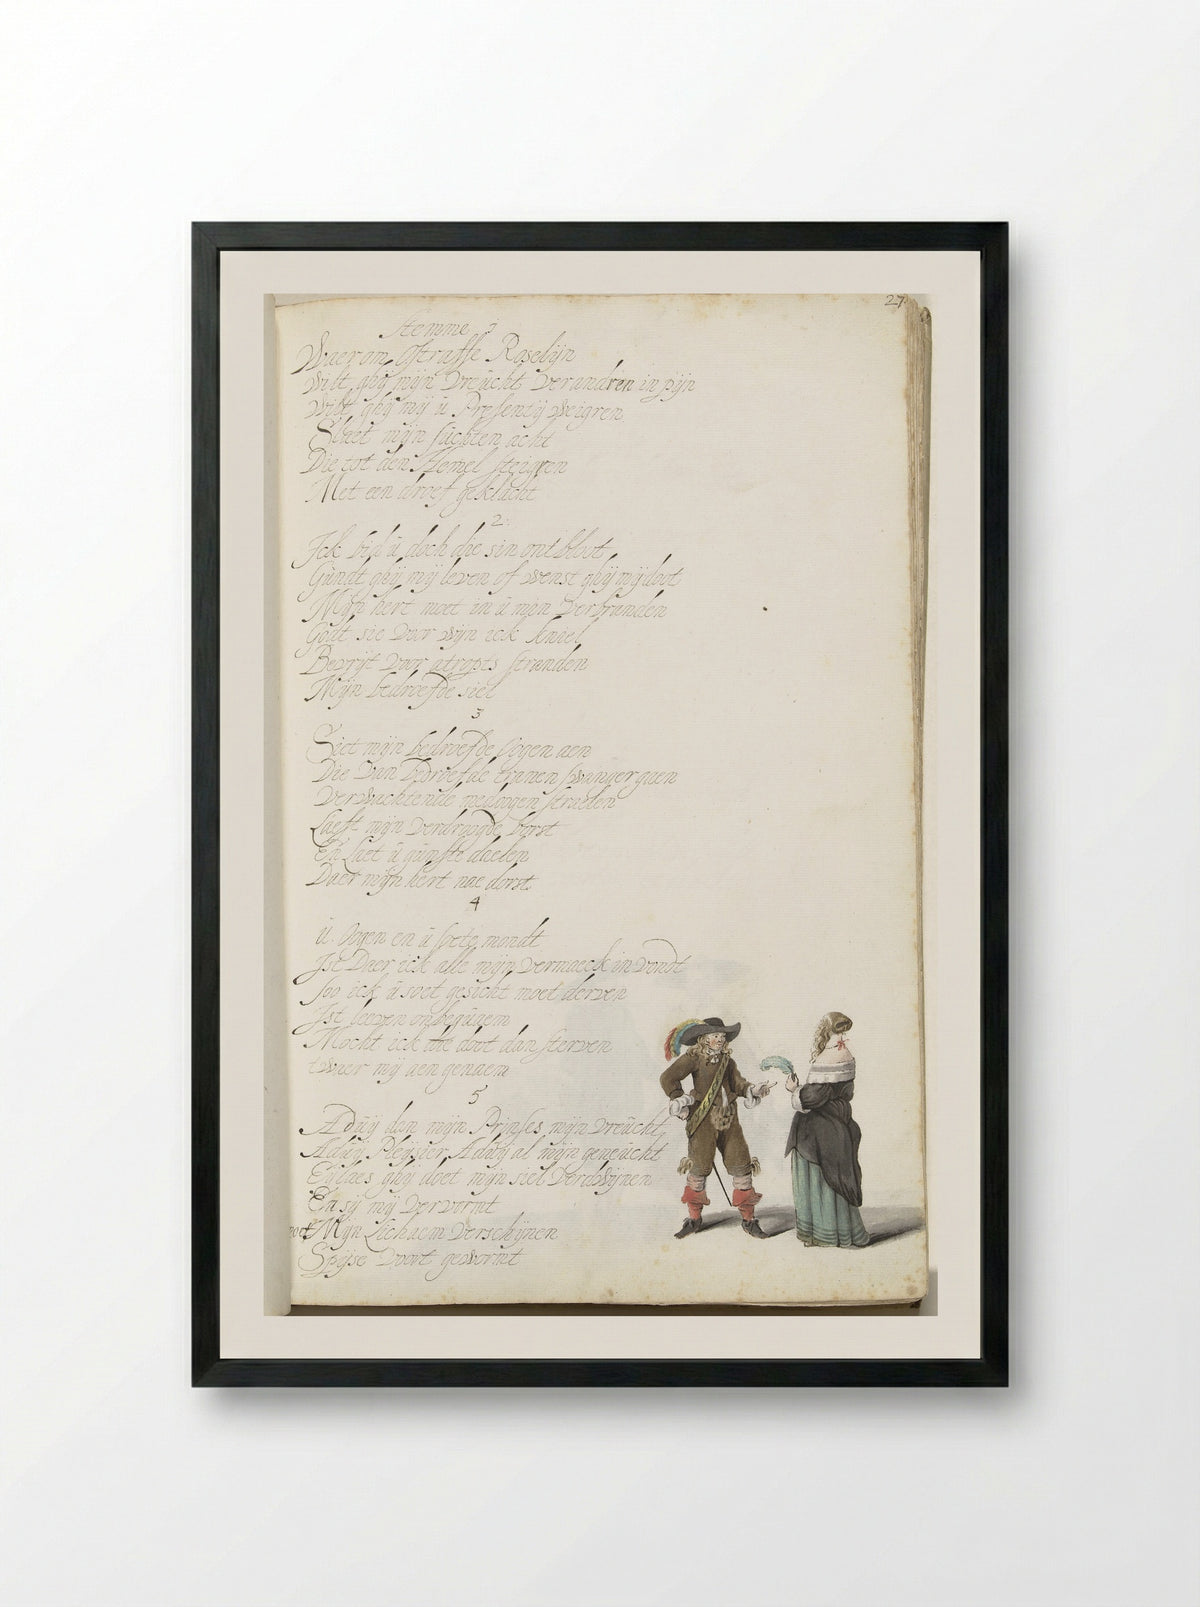 27
Stemme 1
Waerom Straffe Roselijn
Wilt ghij mijn vreucht verandren in pijn
Wilt ghij mij ü Presentij weigren
Slaet mijn süchten acht
Die tot den Hemel steigren
Met een droef geklacht
2
Ick bid ü doch die sin ontbloot
Gündt ghij mij leven of wenst ghij mij doot
Mijn hert moet in ü min verbranden
Godt sie voor wijn ick kniel
Bevrijt voor atropts stranden
Mijn bedroefde siel
3
Siet mijn bedroefde Oogen aen
Die van bedroefde tranen swanger gaen
Verwachtende medoogen straelen
Laeft mijn verdroogde borst
En Laet ü günste daelen
Daer mijn hert nae dorst
4
ü Oogen en ü soete mondt
Ist Daer ick alle mijn vermaeck in vondt
Soo ick ü soet gesicht moet derven
Ist leeven onbequaem
Mocht ick die doot dan sterven
twaer mij aengenaem
5
Adüij dan mijn Prinses mijn vreücht
Adüij Pleijster Adüij al mijn geneücht
Eijlaes ghij doet mijn siel verdwijnen
En sij mij vervormt
moet Mijn Lichaem verschijnen
Spijse voort gewormt